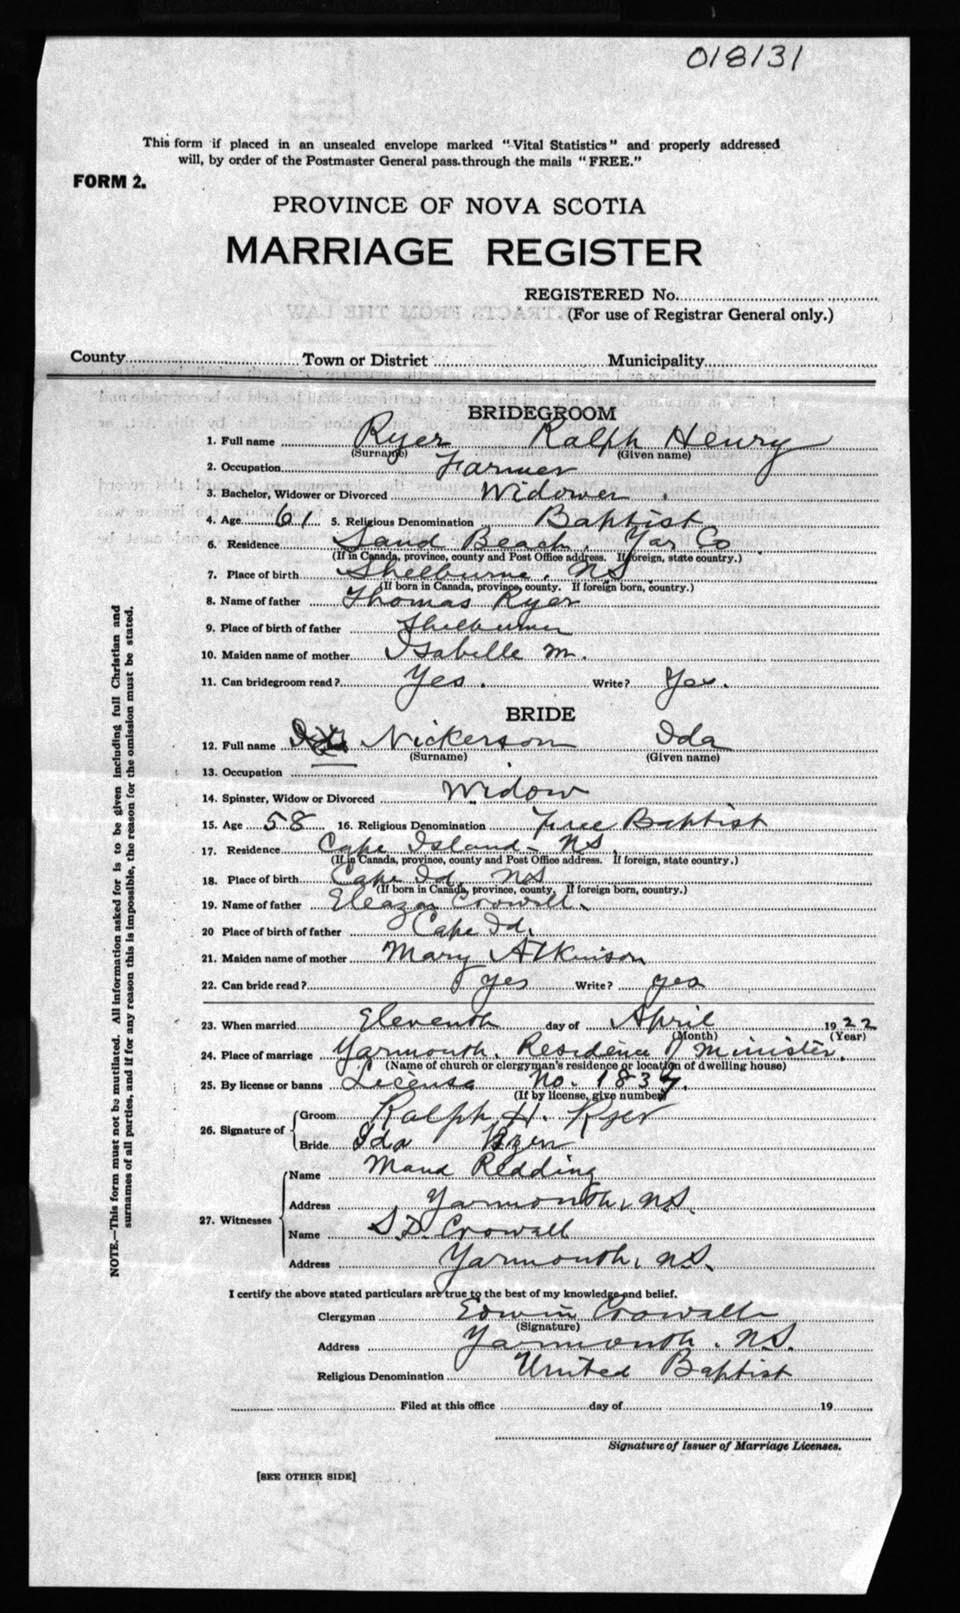 018131
This form if placed in an unsealed envelope marked "Vital Statistics" and properly addressed
will, by order of the Postmaster General pass through the mails "FREE."
FORM 2.
PROVINCE OF NOVA SCOTIA
MARRIAGE REGISTER
REGISTERED No.
(For use of Registrar General only.)
County Town or District Municipality
BRIDEGROOM
1. Full name Ryer Ralph Henry
(Surname) (Given name)
2. Occupation Farmer
3. Bachelor, Widower or Divorced Widower.
4. Age 61 5. Religious Denomination Baptist
6. Residence Sand Beach, Yar Co
(If in Canada, province, county and Post Office address. If foreign, state country.)
7. Place of birth Shelburne, NS
(If born in Canada, province, county. If foreign born, country.)
8. Name of father Thomas Ryer
9. Place of birth of father Shelburne
10. Maiden name of mother Isabelle M.
11. Can bridegroom read? Yes. Write? Yes.
BRIDE
12. Full name Nickerson Ida
(Surname) (Given name)
13. Occupation
14. Spinster, Widow or Divorced Widow
15. Age 58 16. Religious Denomination Free Baptist
17. Residence Cape Island - NS.
(If in Canada, province, county and Post Office address. If foreign, state country.)
18. Place of birth Cape Id. NS
(If born in Canada, province, county. If foreign born, country.)
19. Name of father Eleazar Crowell.
20 Place of birth of father Cape Id.
21. Maiden name of mother Mary Atkinson
22. Can bride read? yes Write? yes
23. When married Eleventh day of April 1922
(Month) (Year)
24. Place of marriage Yarmouth. Residence Minister.
(Name of church or clergyman's residence or location of dwelling house)
25. By license or banns License No. 1837.
(If by license, give number)
26. Signature of Groom Ralph H. Ryer
Bride Ida Ryer
27. Witnesses Name Maud Redding
Address Yarmouth, N.S.
Name S.D. Crowell
Address Yarmouth, N.S.
I certify the above stated particulars are true to the best of my knowledge and belief.
Clergyman Edwin Crowell
(Signature)
Address Yarmouth. N.S.
Religious Denomination United Baptist
Filed at this office day of 19
Signature of Issuer of Marriage Licenses.
[SEE OTHER SIDE]
NOTE.—This form must not be mutilated. All information asked for is to be given including full Christian and
surnames of all parties, and if for any reason this is impossible, the reason for the omission must be stated.